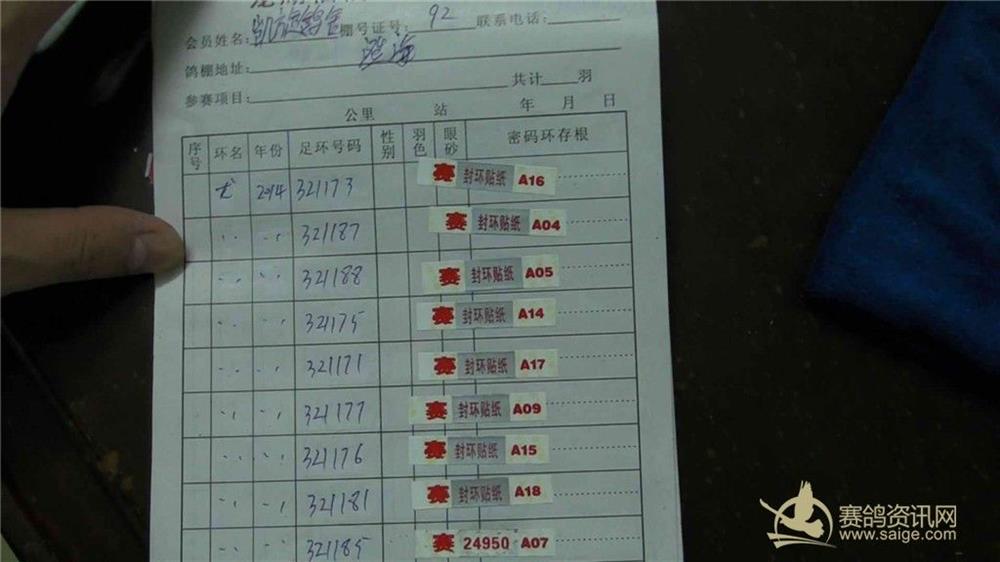 会员姓名: 凯旋鸽舍 棚号证号: 92 联系电话:
鸽棚地址: 澄海
参赛项目: 共计 羽
公里 站 年 月 日
序号 环名 年份 足环号码 性别 羽色 眼砂 密码环存根
尤 2014 321173 赛 封环贴纸 A16
321187 赛 封环贴纸 A04
321188 赛 封环贴纸 A05
321175 赛 封环贴纸 A14
321171 赛 封环贴纸 A17
321177 赛 封环贴纸 A09
321176 赛 封环贴纸 A15
321181 赛 封环贴纸 A18
321185 赛 24950 A07
赛鸽资讯网
www.saige.com